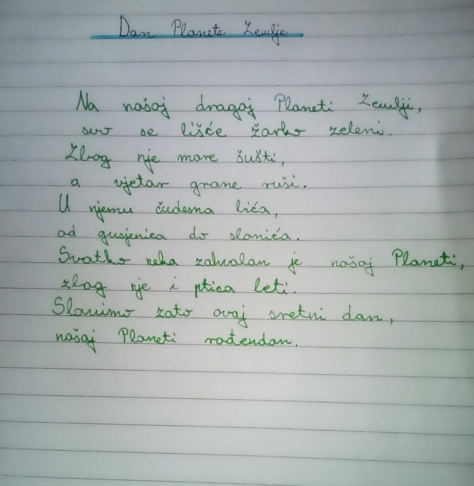 Dan Planete Zemlje
Na našoj dragoj Planeti Zemlji,
svo se lišće žarko zeleni.
Zbog nje more šušti,
a vjetar grane ruši.
U njemu čudesna bića,
od gusjenica do slonića.
Svatko neka zahvalan je našoj Planeti,
zbog nje i ptica leti.
Slavimo zato ovaj sretni dan,
našoj Planeti rođendan.